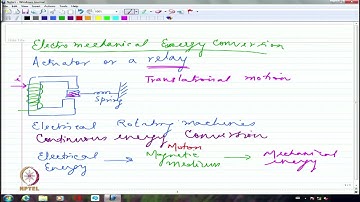 Electromechanical Energy Conversion
Actuator or a relay
Translational motion
i
Spring
Electrical Rotating machines
Continuous energy Conversion
Motors
Electrical Energy → Magnetic Medium → Mechanical energy
NPTEL